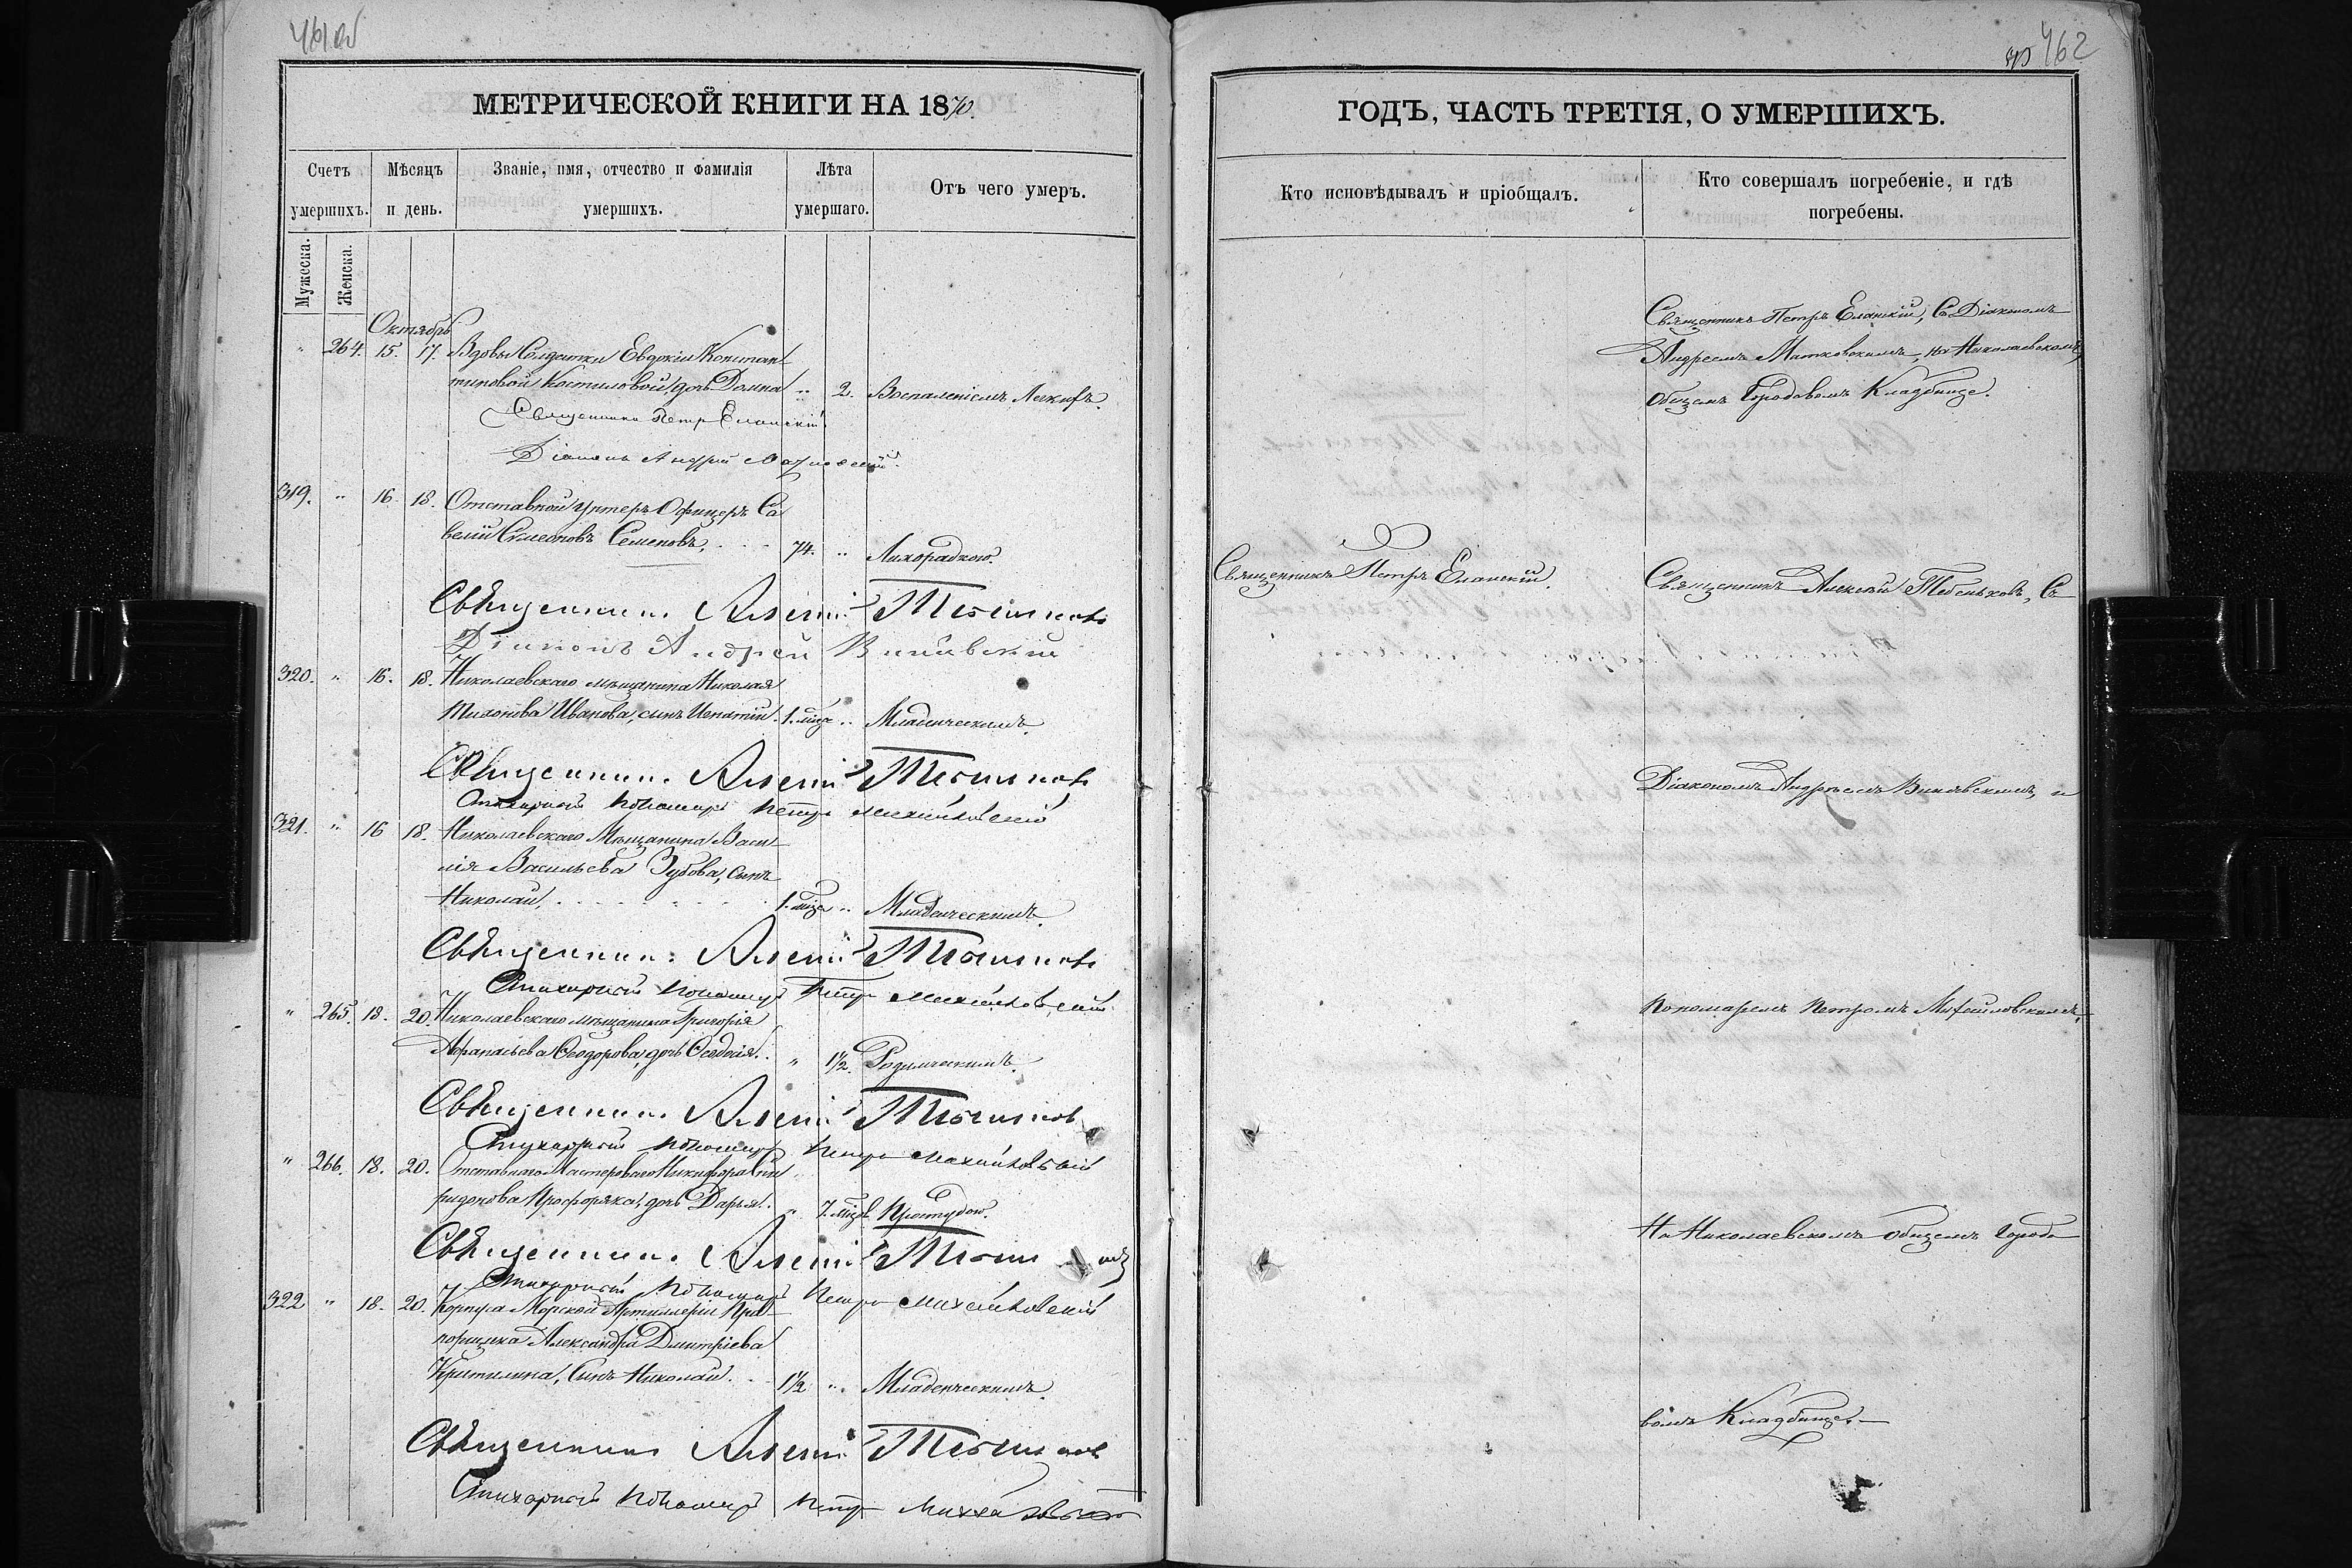 461 об
МЕТРИЧЕСКОЙ КНИГИ НА 1870.
Счетъ умершихъ.
Мѣсяцъ и день.
Званіе, имя, отчество и фамилія умершихъ.
Лѣта умершаго.
Отъ чего умеръ.
Мужеска.
Женска.
Октябрь
264. 15. 17. Вдовы Солдатки Евдокіи Констан
тиновой Костиловой, дочь Домна " 2. Воспаленіемъ Легкихъ.
Священникъ Петръ Еланскій
Діаконъ Андрей
319. " 16. 18. Отставной Унтеръ Офицеръ Са
велій Симеоновъ Семеновъ. 74. " Лихорадкою.
Священникъ Алексій Тебеньковъ
Діаконъ Андрей Винявскій
320. " 16. 18. Николаевскаго мѣщанина Николая
Тихонова Иванова, сынъ Игнатій. 1. мѣс. " Младенческимъ.
Священникъ Алексій Тебеньковъ
Стихарный Пономарь Петръ Михайловскій
321. " 16 18. Николаевскаго Мѣщанина Васи
лія Васильева Зубова, сынъ
Николай. 1. мѣс. " Младенческимъ.
Священникъ Алексій Тебеньковъ
Стихарный Пономарь Петръ Михайловскій
" 265. 18. 20. Николаевскаго мѣщанина Григорія
Афанасьева Ѳеодорова, дочь Ѳеодосія. " 1½. Родимческимъ.
Священникъ Алексій Тебеньковъ
Стихарный Пономарь Петръ Михайловскій
" 266. 18. 20. Отставнаго Мастероваго Никифора Спи
ридонова дочь Дарья. " 7. мѣс. Простудою.
Священникъ Алексій Тебеньковъ
Стихарный Пономарь Петръ Михайловскій
322 " 18. 20. Корпуса Морской Артиллеріи Пра
порщика Александра Дмитріева
сынъ Николай. 1½ " Младенческимъ.
Священникъ Алексій Тебеньковъ
Стихарный Пономарь Петръ Михайловскій
462
ГОДЪ, ЧАСТЬ ТРЕТІЯ, О УМЕРШИХЪ.
Кто исповѣдывалъ и пріобщалъ.
Кто совершалъ погребеніе, и гдѣ
погребены.
Священникъ Петръ Еланскій, Съ Діакономъ
Андреемъ на Николаевскомъ
Общемъ Городовомъ Кладбище.
Священникъ Петръ Еланскій.
Священникъ Алексѣй Тебеньковъ, Съ
Діакономъ Андреемъ Винявскимъ, и
Пономаремъ Петромъ Михайловскимъ,
На Николаевскомъ общемъ Городо
вомъ Кладбище.